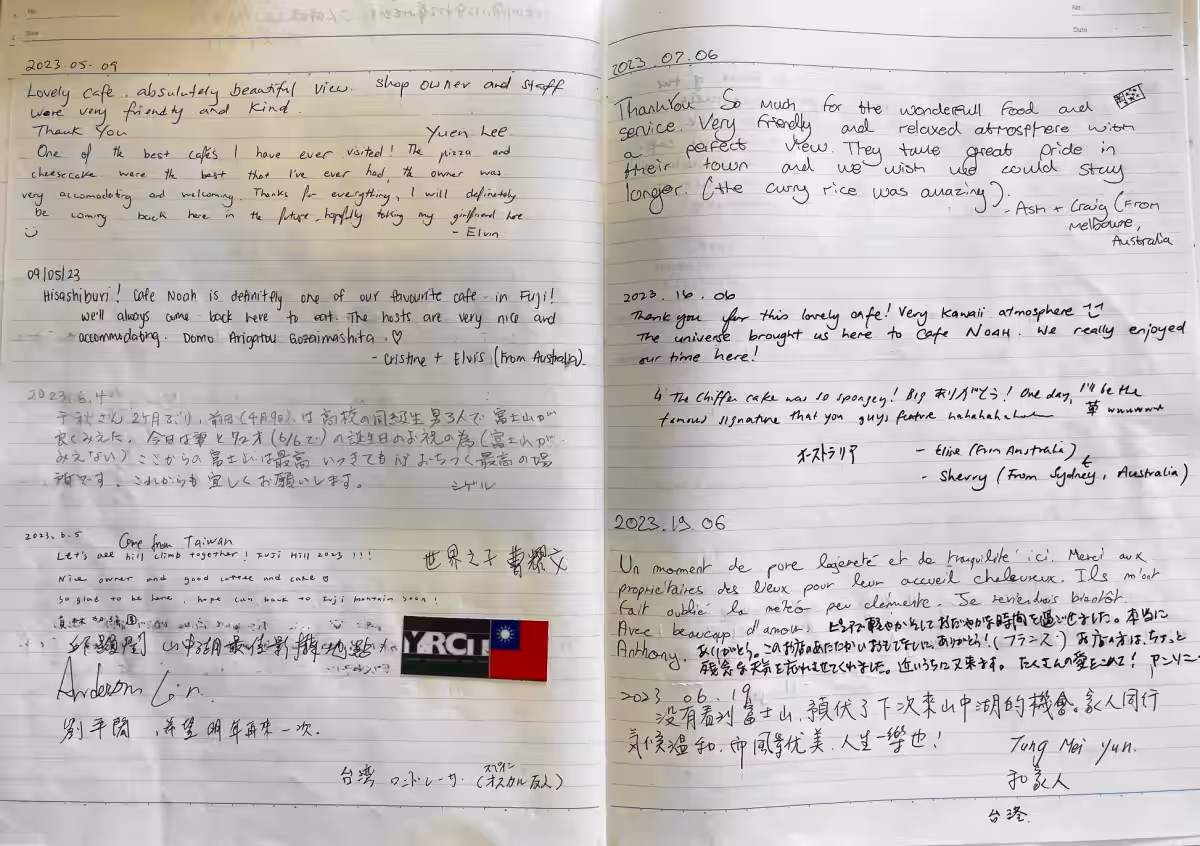 No.
Date
2023.05.09
Lovely Cafe, absolutely beautiful view. shop owner and staff
were very friendly and kind.
Thank You
Yuen Lee
One of the best cafés I have ever visited! The pizza and
cheesecake were the best that I've ever had, the owner was
very accomodating and welcoming. Thanks for everything, I will definitely
be coming back here in the future, hopfully taking my girlfriend here
- Elvin
09/05/23
Hisashiburi! Cafe Noah is definitely one of our favourite cafe in Fuji!
we'll always come back here to eat. The hosts are very nice and
accommodating. Domo Arigatou Gozaimashita. ♡
- Cristine + Elviss (From Australia).
2023.6.4
千秋さん 2ヶ月ぶり、前回(4月9日)は高校の同級生男3人で富士山が
良くみえた。今日は妻と72才(6/6で)の誕生日のお祝の為(富士山が
みえない) ここからの富士山は最高 いつきても おちつく最高の場
所です。これからも宜しくお願いします。
シゲル
2023.6.5
Come from Taiwan
Let's all hill climb together! Fuji Hill 2023 !!!
Nice owner and good coffee and cake
So glad to be here, hope can back to Fuji montain soon!
世界之子 曹耀文
山中湖最佳影
YARCIT
Anderson Lin.
劉平閣、希望明年再來一次.
台湾 ロードレーサー (オスカル友人)
スペイン
No.
Date
2023.07.06
Thank You So much for the wonderfull food and
service. Very friendly and relaxed atmosphere with
a perfect view. They take great pride in
their town and we wish we could stay
longer. (the curry rice was amazing).
- Ash + Craig (From
Melbourne,
Australia
2023.16.06
Thank you for this lovely cafe! Very Kawaii atmosphere
The universe brought us here to Cafe NOAH. We really enjoyed
our time here!
The chiffon cake was so spongey! Big ありがとう! One day, I'll be the
famous signature that you guys feature hahahahaha 草 wwwwww
オーストラリア
- Elise (From Australia)
- Sherry (From Sydney, Australia)
2023.19.06
Un moment de pure légèreté et de tranquilité ici. Merci aux
propriétaires des lieux pour leur accueil chaleureux. Ils m'ont
fait oublié la météo peu clémente. Je reviendrais bientôt.
Avec beaucoup d'amour, とても軽やかでおだやかな時間を過ごせました。本当に
Anthony. ありがとう。このお店のあたたかいおもてなしありがとう! (フランス) お店の方は、ちょっと
残念な天気を忘れさせてくれました。近いうちに又来ます。たくさんの愛をこめて! アンソニー
2023.06.19
没有看到富士山,預伏了下次來山中湖的機會。家人同行
氣候溫和,而風景优美.人生一樂也!
Tung Mei Yun.
和家人
台湾